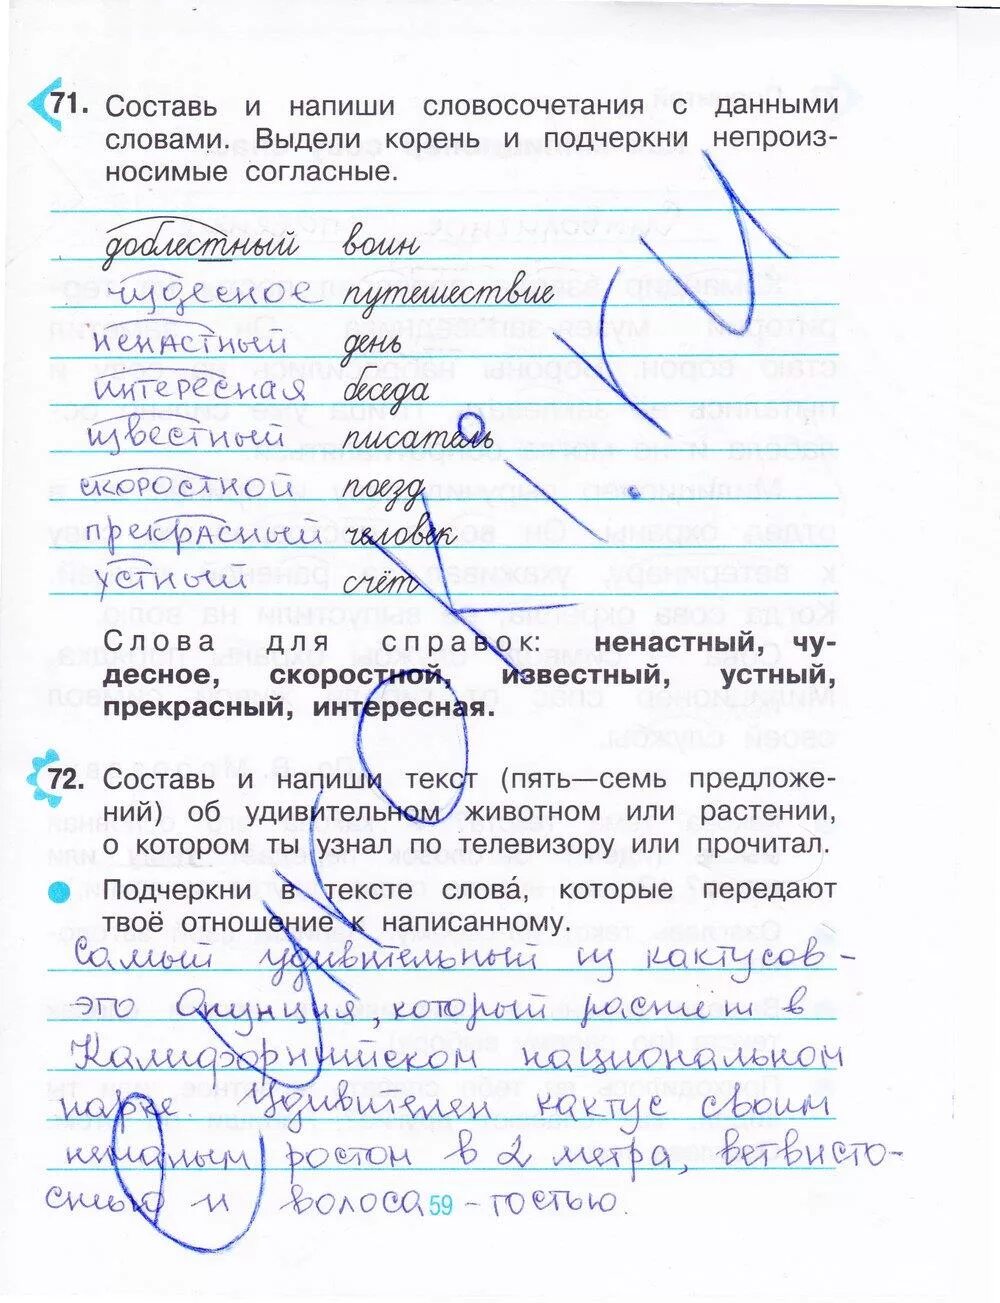 71. Составь и напиши словосочетания с данными
словами. Выдели корень и подчеркни непроиз-
носимые согласные.
доблестный воин
чудесное путешествие
ненастный день
интересная беседа
известный писатель
скоростной поезд
прекрасный человек
устный счёт
Слова для справок: ненастный, чу-
десное, скоростной, известный, устный,
прекрасный, интересная.
72. Составь и напиши текст (пять—семь предложе-
ний) об удивительном животном или растении,
о котором ты узнал по телевизору или прочитал.
Подчеркни в тексте слова́, которые передают
твоё отношение к написанному.
Самый удивительный из кактусов -
это Опунция, который растёт в
Калифорнийском национальном
парке. Удивителен кактус своим
немалым ростом в 2 метра, ветвисто-
стью и волоса - тостью.
59